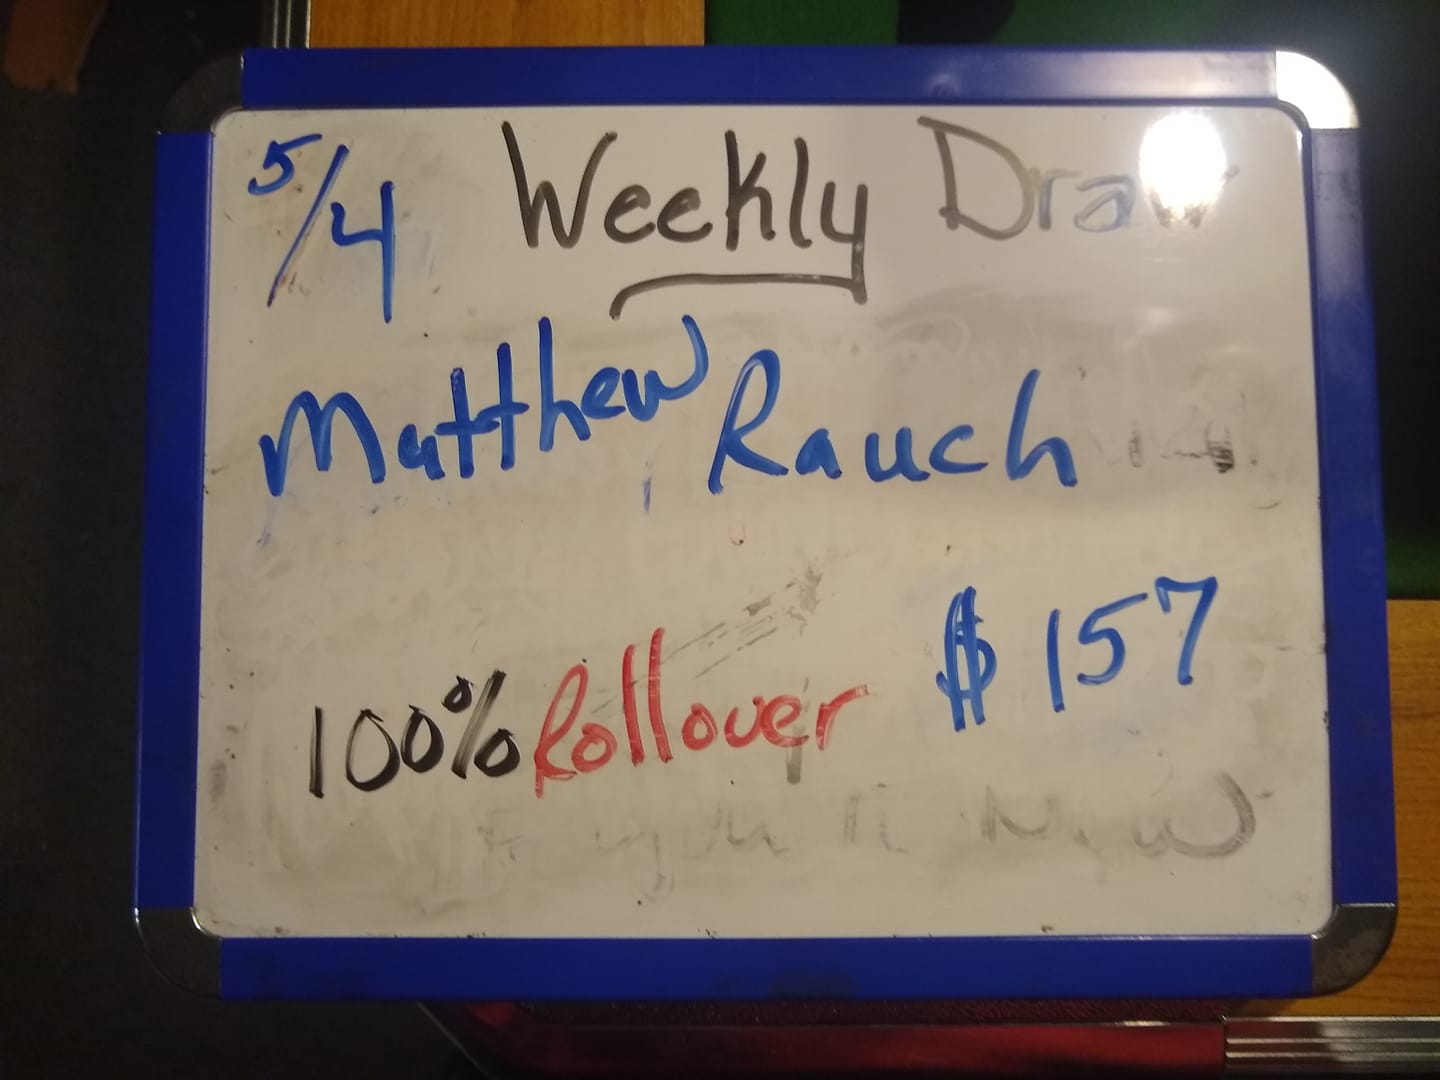 5/4 Weekly Draw
Matthew Rauch
$157
100% Rollover